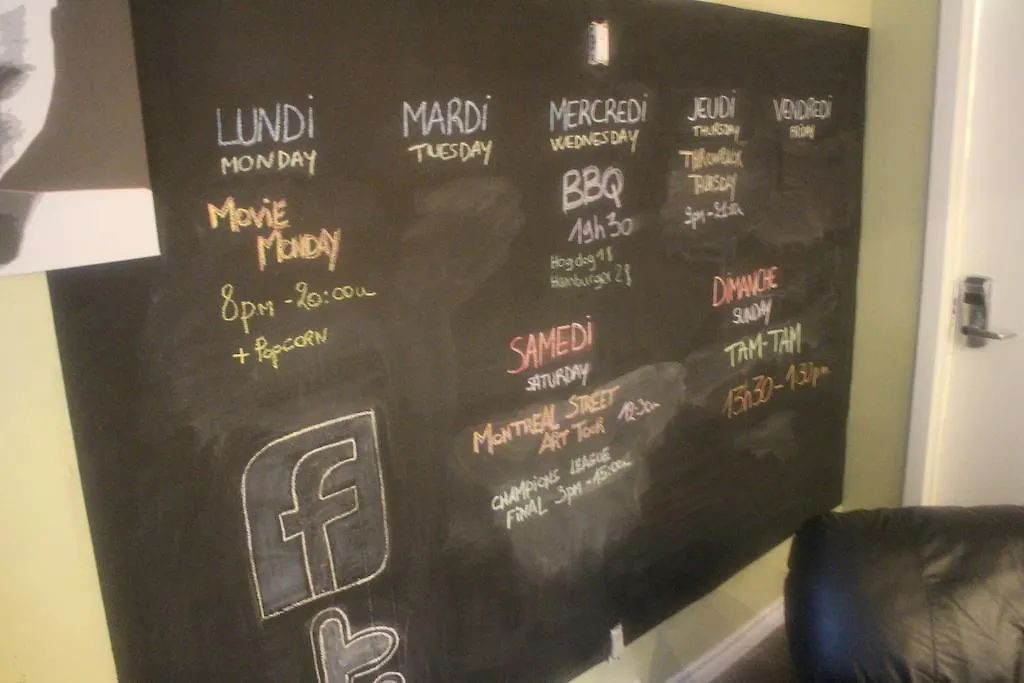 LUNDi
MONDAY
MOViE
MONDAY
8pm - 20:00u
+ POPCORN
MARDi
TUESDAY
MERCREDi
WEDNESDAY
BBQ
19h30
Hogdog 1$
Hamburger 2$
JEUDi
THURSDAY
THROWBACK
THURSDAY
9pm - 21:00
VENDREDi
FRiDAY
SAMEDi
SATURDAY
MONTREAL STREET
ART TOUR 12:30u
CHAMPiONS LEAGUE
FiNAL 3pm - 15:00u
DiMANCHE
SUNDAY
TAM-TAM
13h30 - 1:30pm
f
t